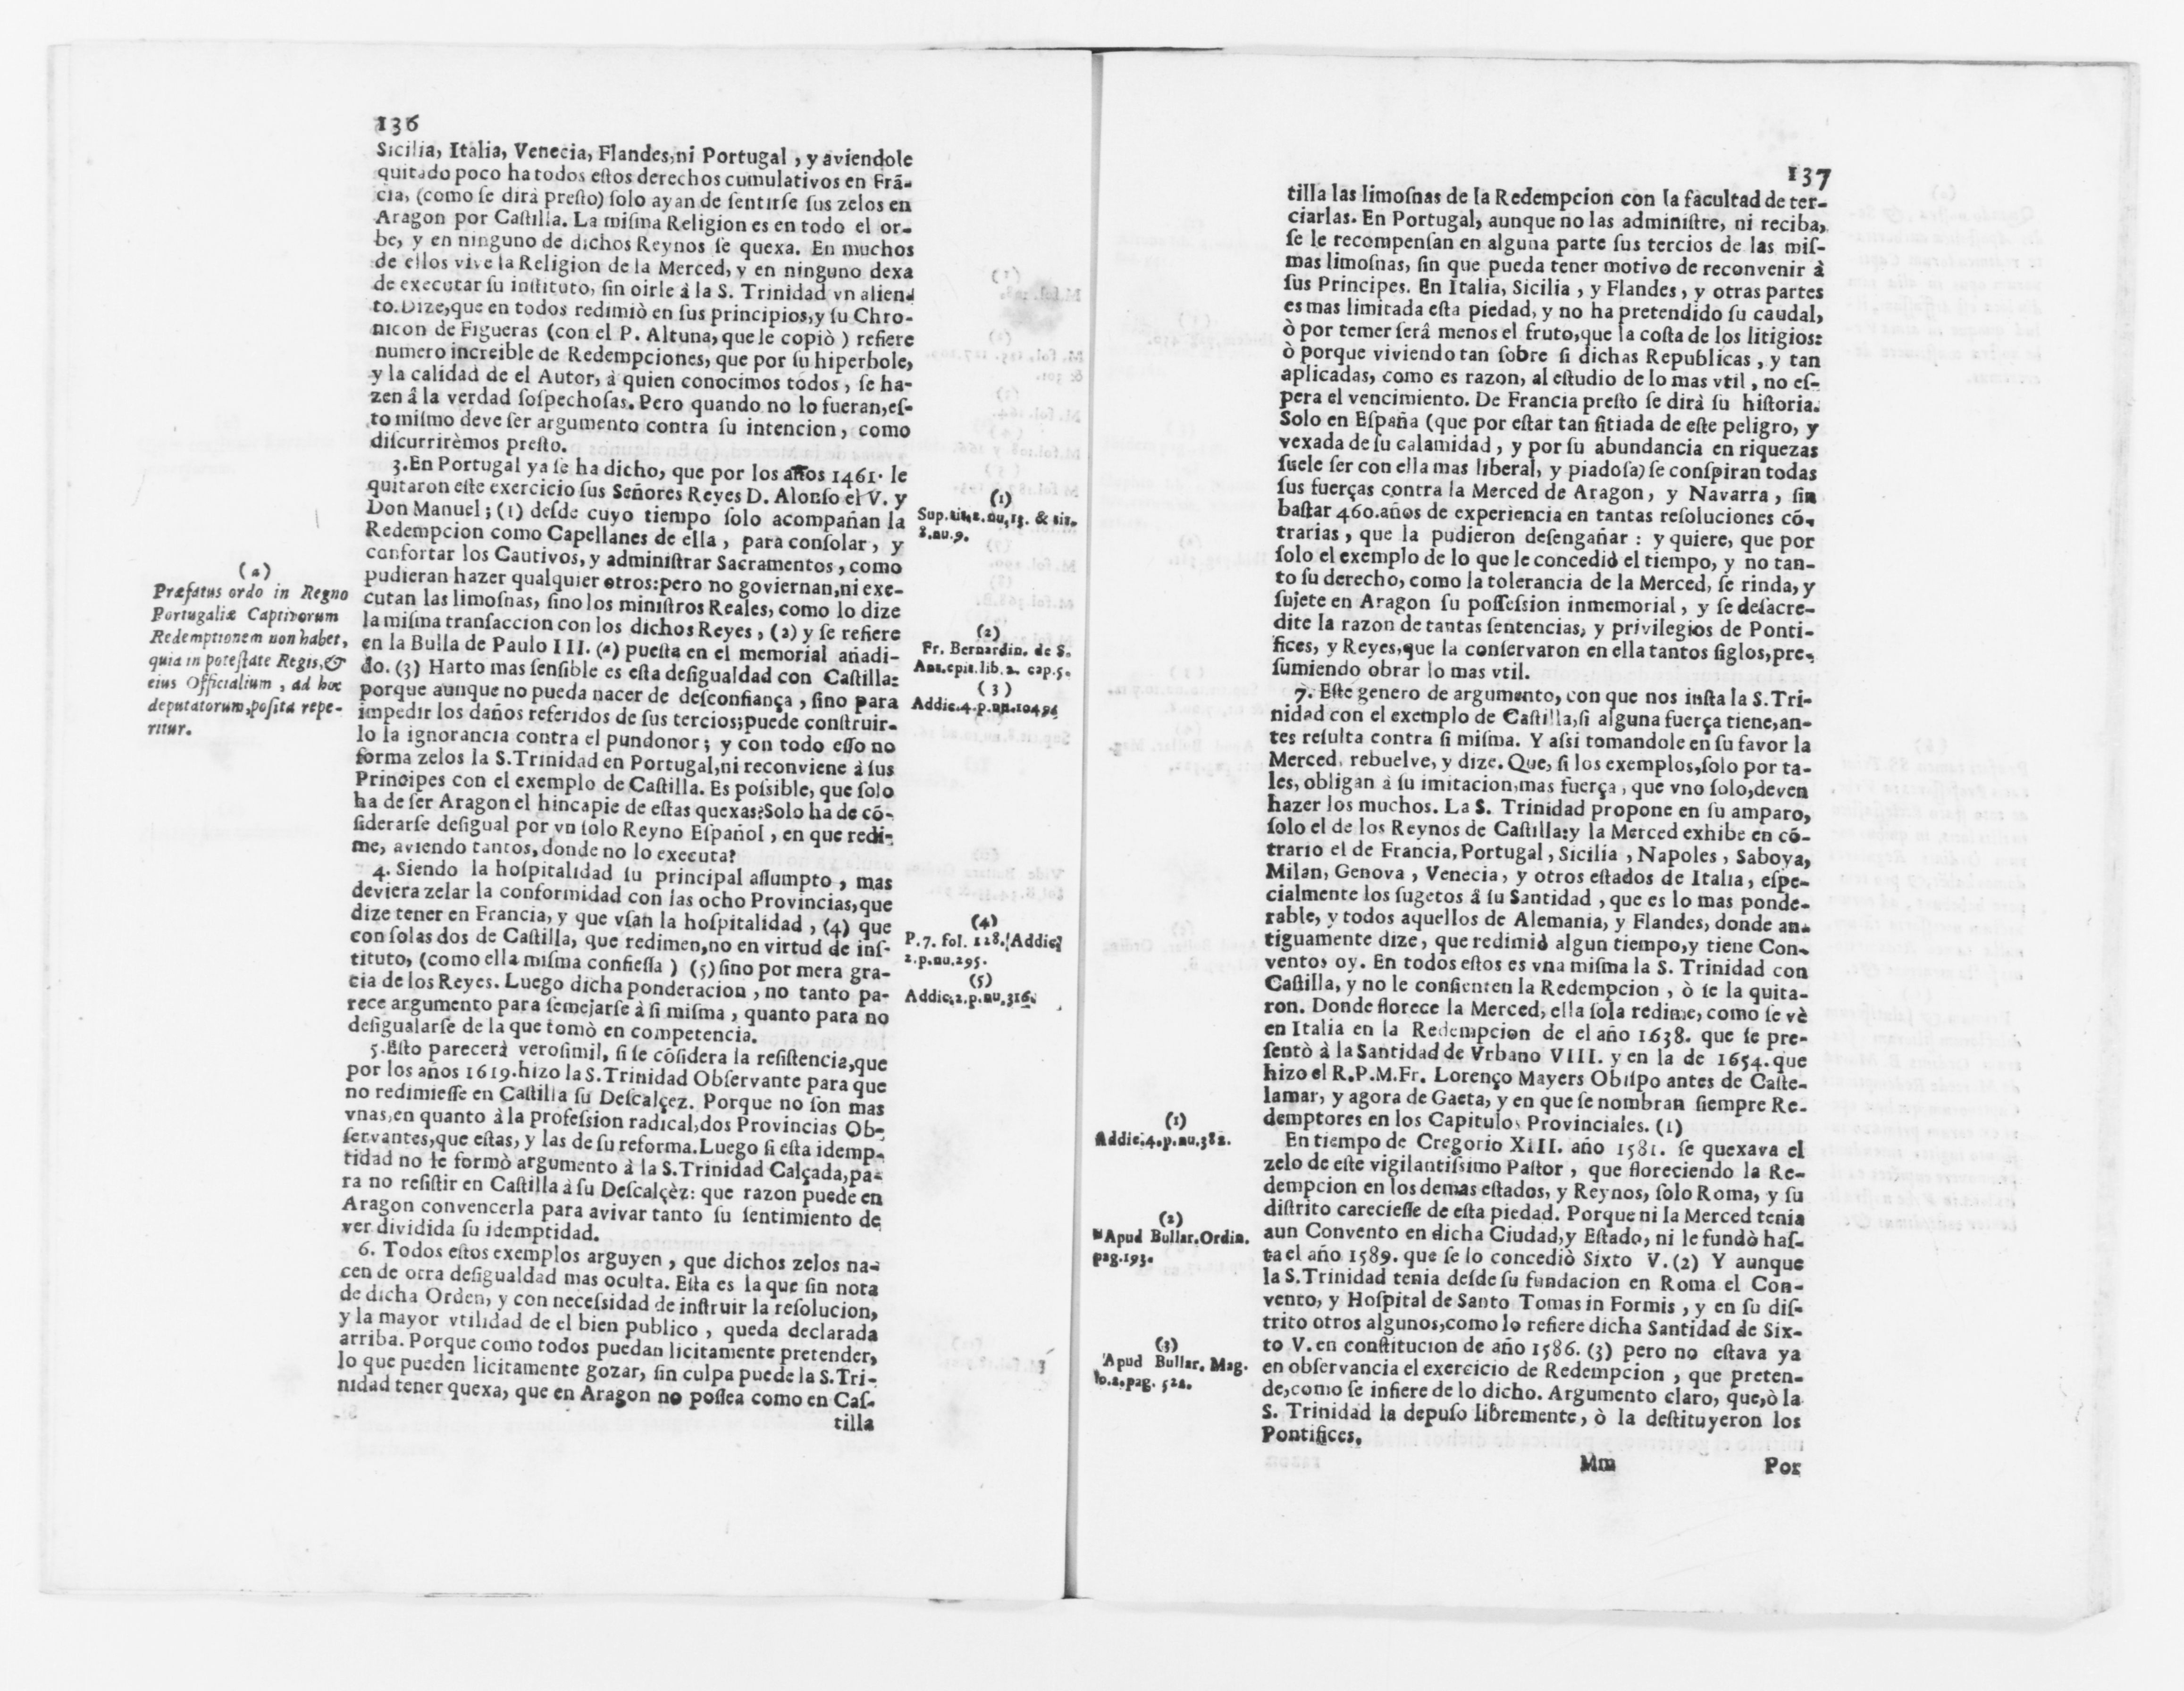 136
Sicilia, Italia, Venecia, Flandes,ni Portugal , y aviendole
quitado poco ha todos eſtos derechos cumulativos en Frã-
cia, (como ſe dirà preſto) ſolo ayan de ſentirſe ſus zelos en
Aragon por Caſtilla. La miſma Religion es en todo el or-
be, y en ninguno de dichos Reynos ſe quexa. En muchos
de ellos vive la Religion de la Merced, y en ninguno dexa
de executar ſu inſtituto, ſin oirle â la S. Trinidad vn alien-
to. Dize,que en todos redimiò en ſus principios,y ſu Chro-
nicon de Figueras (con el P. Altuna, que le copiò ) refiere
numero increible de Redempciones, que por ſu hiperbole,
y la calidad de el Autor, à quien conocimos todos , ſe ha-
zen â la verdad ſoſpechoſas. Pero quando no lo fueran,eſ-
to miſmo deve ſer argumento contra ſu intencion, como
diſcurrirèmos preſto.
3. En Portugal ya ſe ha dicho, que por los años 1461. le
quitaron eſte exercicio ſus Señores Reyes D. Alonſo el V. y
Don Manuel; (1) deſde cuyo tiempo ſolo acompañan la
Redempcion como Capellanes de ella , para conſolar , y
confortar los Cautivos, y adminiſtrar Sacramentos, como
pudieran hazer qualquier otros:pero no goviernan,ni exe-
cutan las limoſnas, ſino los miniſtros Reales, como lo dize
la miſma tranſaccion con los dichos Reyes , (2) y ſe refiere
en la Bulla de Paulo III. (a) pueſta en el memorial añadi-
do. (3) Harto mas ſenſible es eſta deſigualdad con Caſtilla:
porque aunque no pueda nacer de deſconfiança , ſino para
impedir los daños referidos de ſus tercios;puede conſtruir-
lo la ignorancia contra el pundonor; y con todo eſſo no
forma zelos la S. Trinidad en Portugal,ni reconviene à ſus
Principes con el exemplo de Caſtilla. Es poſsible, que ſolo
ha de ſer Aragon el hincapie de eſtas quexas?Solo ha de cõ-
ſiderarſe deſigual por vn ſolo Reyno Eſpañol , en que redi-
me, aviendo tantos, donde no lo executa?
4. Siendo la hoſpitalidad ſu principal aſſumpto , mas
deviera zelar la conformidad con las ocho Provincias,que
dize tener en Francia, y que vſan la hoſpitalidad , (4) que
con ſolas dos de Caſtilla, que redimen,no en virtud de inſ-
tituto, (como ella miſma confieſſa ) (5) ſino por mera gra-
cia de los Reyes. Luego dicha ponderacion , no tanto pa-
rece argumento para ſemejarſe à ſi miſma , quanto para no
deſigualarſe de la que tomò en competencia.
5. Eſto parecerà veroſimil, ſi ſe cõſidera la reſiſtencia,que
por los años 1619. hizo la S. Trinidad Obſervante para que
no redimieſſe en Caſtilla ſu Deſcalçez. Porque no ſon mas
vnas, en quanto à la profeſsion radical,dos Provincias Ob-
ſervantes,que eſtas, y las de ſu reforma. Luego ſi eſta idemp-
tidad no le formò argumento à la S. Trinidad Calçada,pa-
ra no reſiſtir en Caſtilla à ſu Deſcalçèz: que razon puede en
Aragon convencerla para avivar tanto ſu ſentimiento de
ver dividida ſu idemptidad.
6. Todos eſtos exemplos arguyen , que dichos zelos na-
cen de otra deſigualdad mas oculta. Eſta es la que ſin nota
de dicha Orden, y con neceſsidad de inſtruir la reſolucion,
y la mayor vtilidad de el bien publico , queda declarada
arriba. Porque como todos puedan licitamente pretender,
lo que pueden licitamente gozar, ſin culpa puede la S. Tri-
nidad tener quexa, que en Aragon no poſſea como en Caſ-
tilla
(a)
Præfatus ordo in Regno
Portugaliæ Captivorum
Redemptionem non habet,
quia in poteſtate Regis,&
eius Officialium , ad hoc
deputatorum,poſita repe-
ritur.
(1)
Sup. tit.2.nu.13. & tit.
8.nu.9.
(2)
Fr. Bernardin. de S.
Ant.epit.lib.2. cap.5.
(3)
Addic.4.p.nu.1049.
(4)
P.7. fol. 128. Addic.
2.p.nu.295.
(5)
Addic.2.p.nu.316.
137
tilla las limoſnas de la Redempcion con la facultad de ter-
ciarlas. En Portugal, aunque no las adminiſtre, ni reciba,
ſe le recompenſan en alguna parte ſus tercios de las miſ-
mas limoſnas, ſin que pueda tener motivo de reconvenir à
ſus Principes. En Italia, Sicilia , y Flandes , y otras partes
es mas limitada eſta piedad, y no ha pretendido ſu caudal,
ò por temer ſerâ menos el fruto,que la coſta de los litigios:
ò porque viviendo tan ſobre ſi dichas Republicas , y tan
aplicadas, como es razon, al eſtudio de lo mas vtil , no eſ-
pera el vencimiento. De Francia preſto ſe dirà ſu hiſtoria.
Solo en Eſpaña (que por eſtar tan ſitiada de eſte peligro, y
vexada de ſu calamidad , y por ſu abundancia en riquezas
ſuele ſer con ella mas liberal, y piadoſa) ſe conſpiran todas
ſus fuerças contra la Merced de Aragon, y Navarra , ſin
baſtar 460. años de experiencia en tantas reſoluciones cõ-
trarias , que la pudieron deſengañar : y quiere, que por
ſolo el exemplo de lo que le concediò el tiempo, y no tan-
to ſu derecho, como la tolerancia de la Merced, ſe rinda, y
ſujete en Aragon ſu poſſeſsion inmemorial , y ſe deſacre-
dite la razon de tantas ſentencias, y privilegios de Ponti-
fices, y Reyes,que la conſervaron en ella tantos ſiglos,pre-
ſumiendo obrar lo mas vtil.
7. Eſte genero de argumento, con que nos inſta la S. Tri-
nidad con el exemplo de Caſtilla,ſi alguna fuerça tiene,an-
tes reſulta contra ſi miſma. Y aſsi tomandole en ſu favor la
Merced, rebuelve, y dize. Que, ſi los exemplos,ſolo por ta-
les, obligan à ſu imitacion,mas fuerça , que vno ſolo,deven
hazer los muchos. La S. Trinidad propone en ſu amparo,
ſolo el de los Reynos de Caſtilla:y la Merced exhibe en cõ-
trario el de Francia, Portugal , Sicilia , Napoles , Saboya,
Milan, Genova , Venecia, y otros eſtados de Italia, eſpe-
cialmente los ſugetos â ſu Santidad , que es lo mas ponde-
rable, y todos aquellos de Alemania, y Flandes, donde an-
tiguamente dize , que redimiò algun tiempo,y tiene Con-
ventos oy. En todos eſtos es vna miſma la S. Trinidad con
Caſtilla, y no le conſienten la Redempcion , ò ſe la quita-
ron. Donde florece la Merced, ella ſola redime, como ſe vè
en Italia en la Redempcion de el año 1638. que ſe pre-
ſentò à la Santidad de Vrbano VIII. y en la de 1654. que
hizo el R.P.M.Fr. Lorenço Mayers Obiſpo antes de Caſte-
lamar, y agora de Gaeta, y en que ſe nombran ſiempre Re-
demptores en los Capitulos Provinciales. (1)
En tiempo de Cregorio XIII. año 1581. ſe quexava el
zelo de eſte vigilantiſsimo Paſtor , que floreciendo la Re-
dempcion en los demas eſtados, y Reynos, ſolo Roma, y ſu
diſtrito carecieſſe de eſta piedad. Porque ni la Merced tenia
aun Convento en dicha Ciudad,y Eſtado, ni le fundò haſ-
ta el año 1589. que ſe lo concediò Sixto V. (2) Y aunque
la S. Trinidad tenia deſde ſu fundacion en Roma el Con-
vento, y Hoſpital de Santo Tomas in Formis , y en ſu diſ-
trito otros algunos,como lo refiere dicha Santidad de Six-
to V. en conſtitucion de año 1586. (3) pero no eſtava ya
en obſervancia el exercicio de Redempcion , que preten-
de,como ſe infiere de lo dicho. Argumento claro, que,ò la
S. Trinidad la depuſo libremente, ò la deſtituyeron los
Pontifices.
Mm Por
(1)
Addic.4.p.nu.382.
(2)
Apud Bullar.Ordin.
pag.193.
(3)
Apud Bullar. Mag.
to.2.pag. 522.